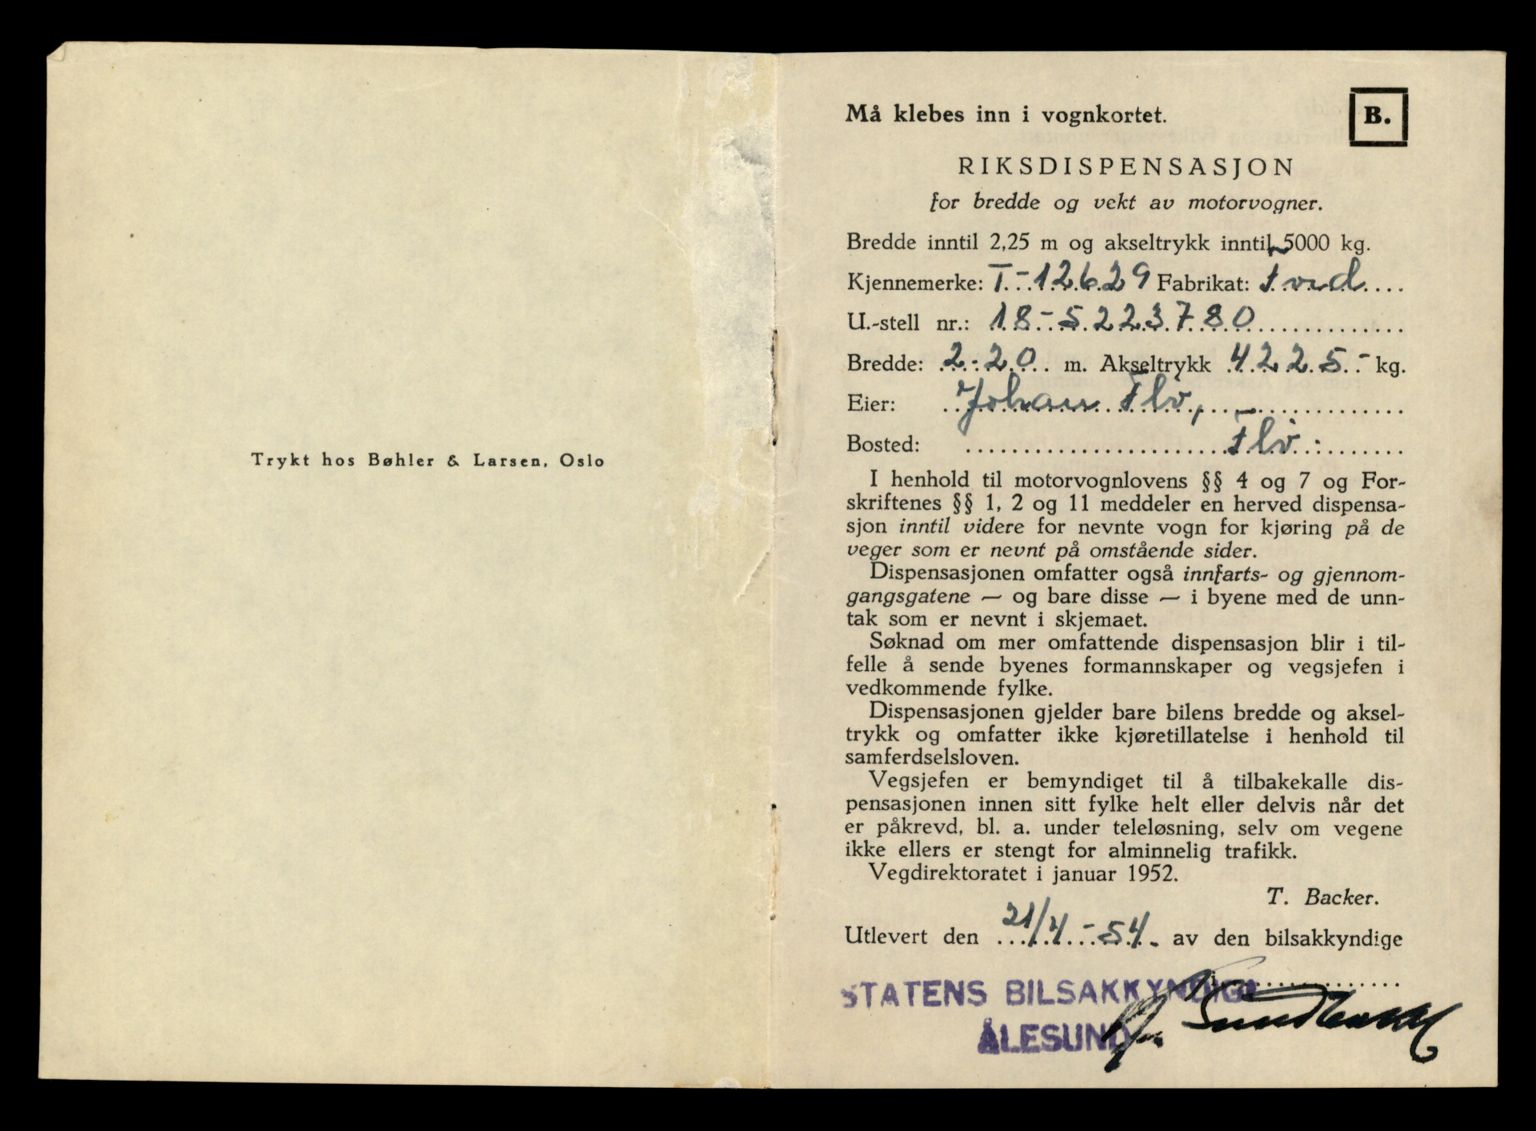 Trykt hos Bøhler & Larsen, Oslo
Må klebes inn i vognkortet.
B.
RIKSDISPENSASJON
for bredde og vekt av motorvogner.
Bredde inntil 2,25 m og akseltrykk inntil 5000 kg.
Kjennemerke: T-12629 Fabrikat: Ford
U.-stell nr.: 18-5223780
Bredde: 2-20 m. Akseltrykk 4225.- kg.
Eier: Johan Flø,
Bosted: Flø.
I henhold til motorvognlovens §§ 4 og 7 og For-
skriftenes §§ 1, 2 og 11 meddeler en herved dispensa-
sjon inntil videre for nevnte vogn for kjøring på de
veger som er nevnt på omstående sider.
Dispensasjonen omfatter også innfarts- og gjennom-
gangsgatene — og bare disse — i byene med de unn-
tak som er nevnt i skjemaet.
Søknad om mer omfattende dispensasjon blir i til-
felle å sende byenes formannskaper og vegsjefen i
vedkommende fylke.
Dispensasjonen gjelder bare bilens bredde og aksel-
trykk og omfatter ikke kjøretillatelse i henhold til
samferdselsloven.
Vegsjefen er bemyndiget til å tilbakekalle dis-
pensasjonen innen sitt fylke helt eller delvis når det
er påkrevd, bl. a. under teleløsning, selv om vegene
ikke ellers er stengt for alminnelig trafikk.
Vegdirektoratet i januar 1952.
T. Backer.
Utlevert den 21/4-54. av den bilsakkyndige
STATENS BILSAKKYNDIGE
ÅLESUND